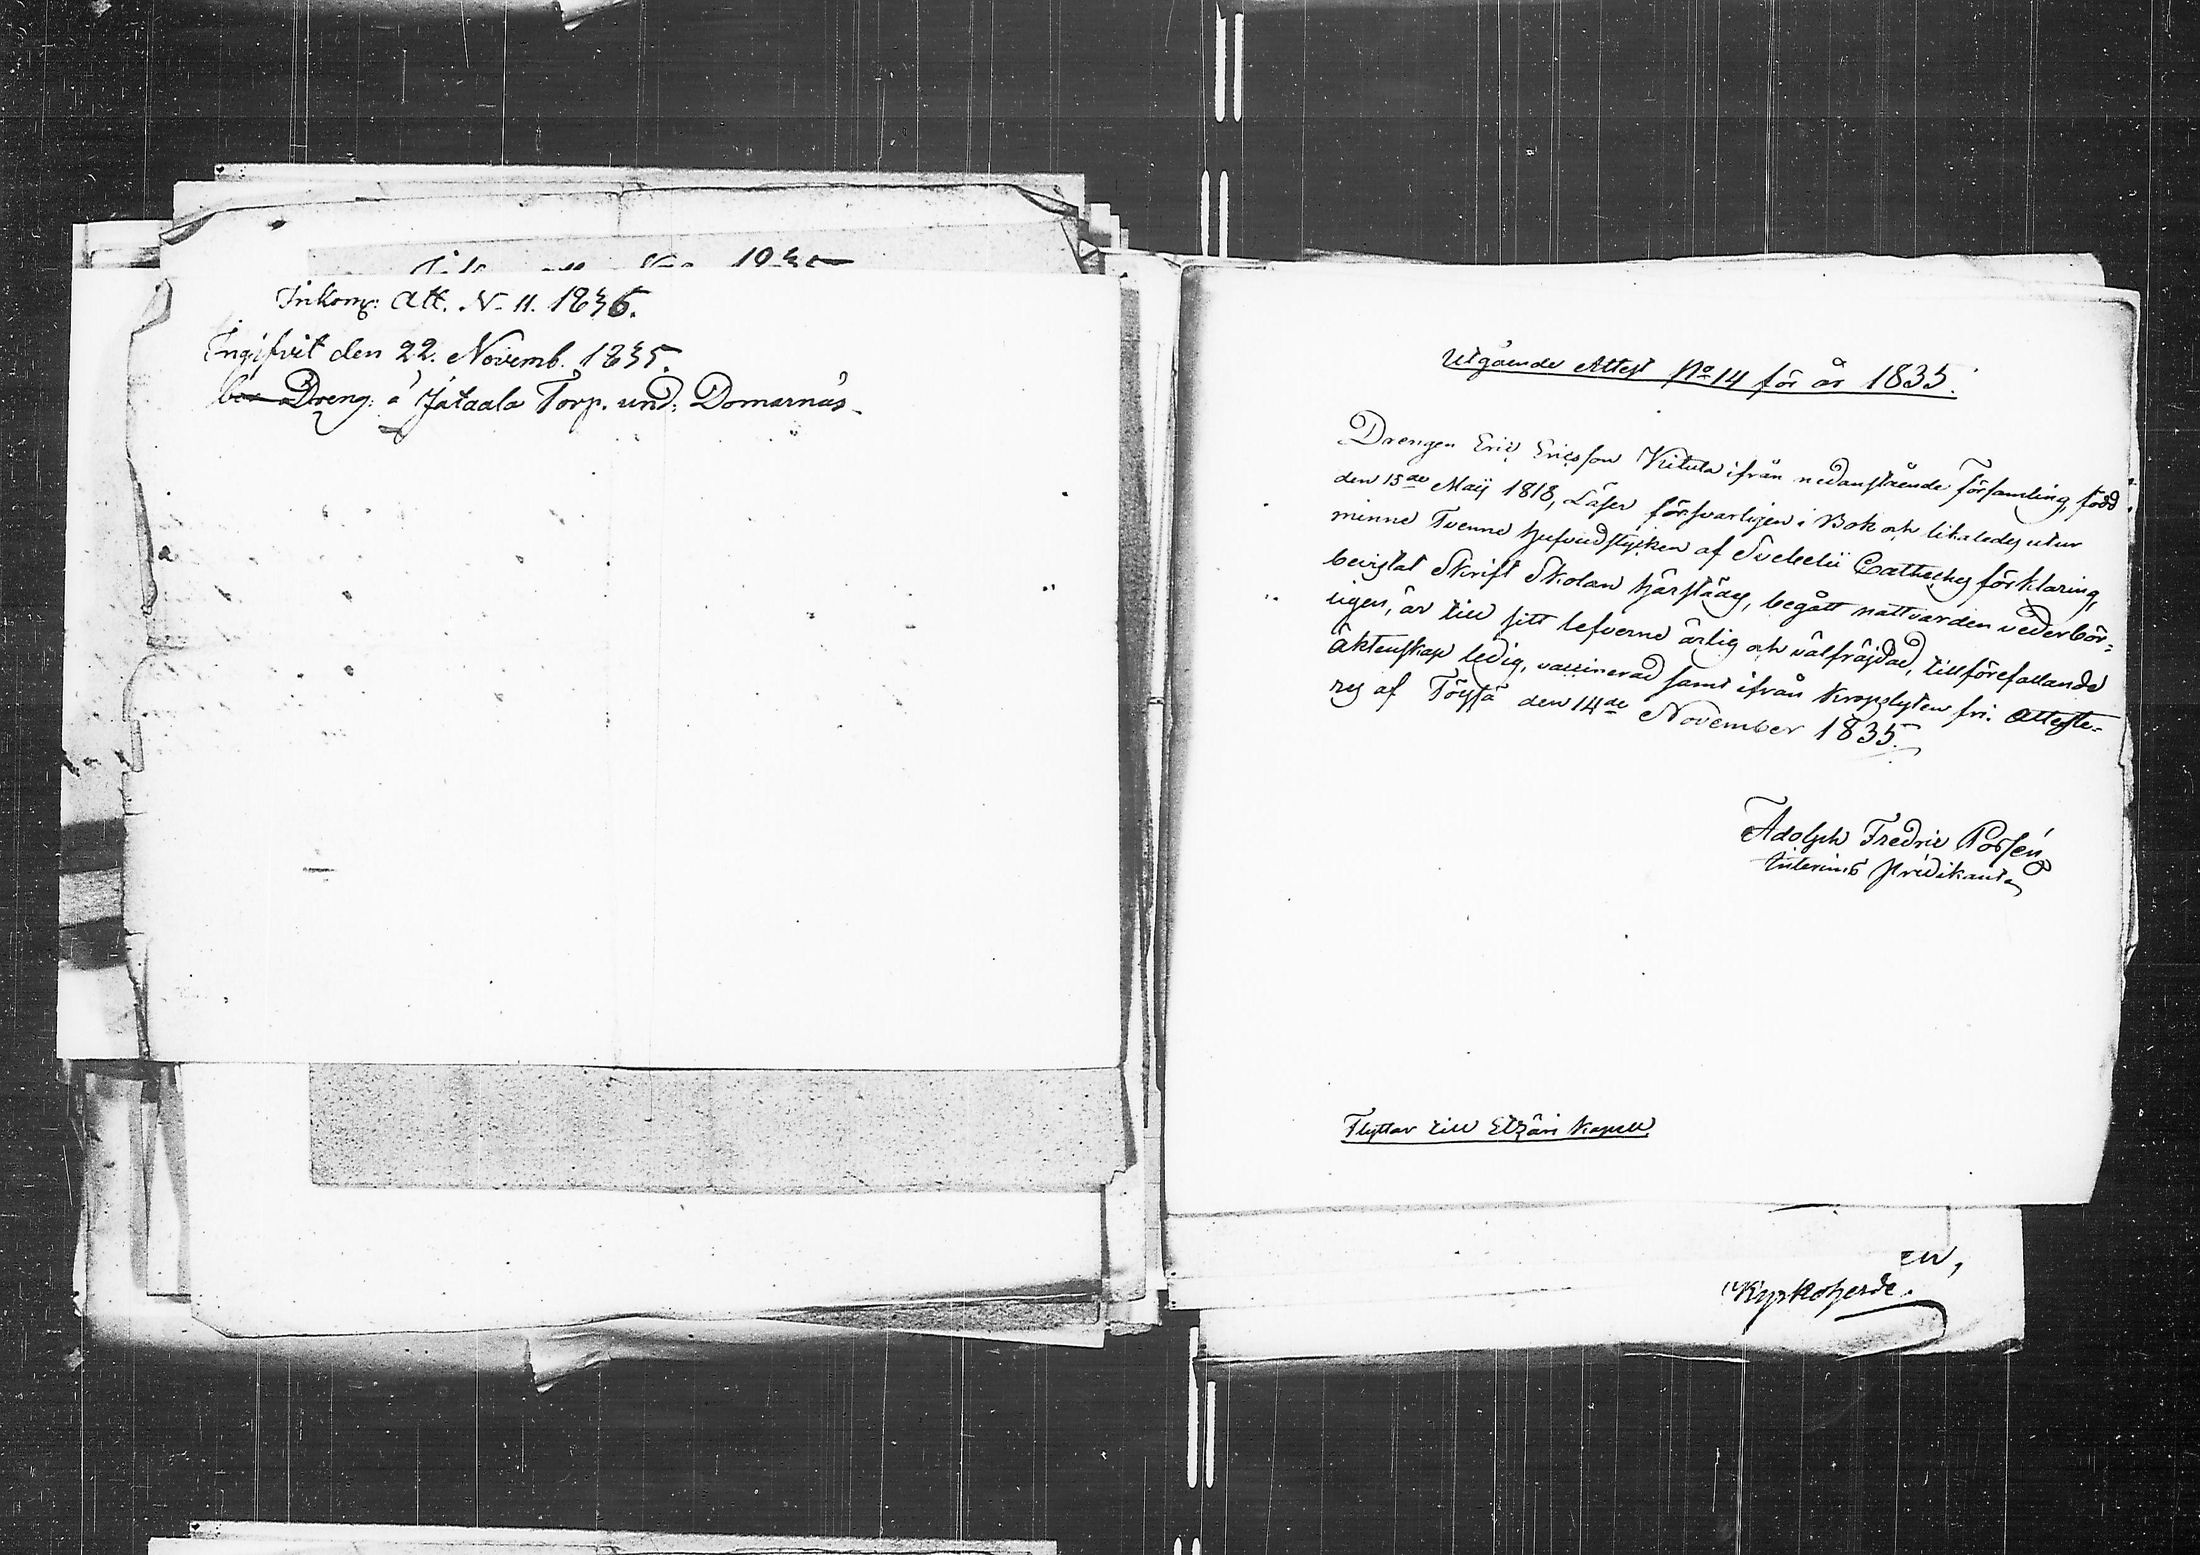 Inkom: Att. N. 11. 1836.
Ingifvit den 22. Novemb. 1835.
Dreng: å Jataala Torp. und: Domarnäs
Utgående Attest No 14 för år 1835.
Drengen Eric Ericsson Kitula ifrån nedanstående Församling, född
den 15de Maij 1818, Läser försvarligen i Bok och likaledes utur
minne Tvenne hufvudstycken af Svebelii Catheches förklaring,
bevistat Skrift Skolan härstädes, begått nattvarden vederbör-
ligen, är till sitt lefverne ärlig och välfräjdad, till förefallande
äktenskap ledig, vaccinerad samt ifrån kropslyten fri. Atteste-
res af Töysä den 14de November 1835.
Adolph Fredric Rosén
Interims Predikant
Flyttar till Etzäri Kapell
Kyrkoherde.